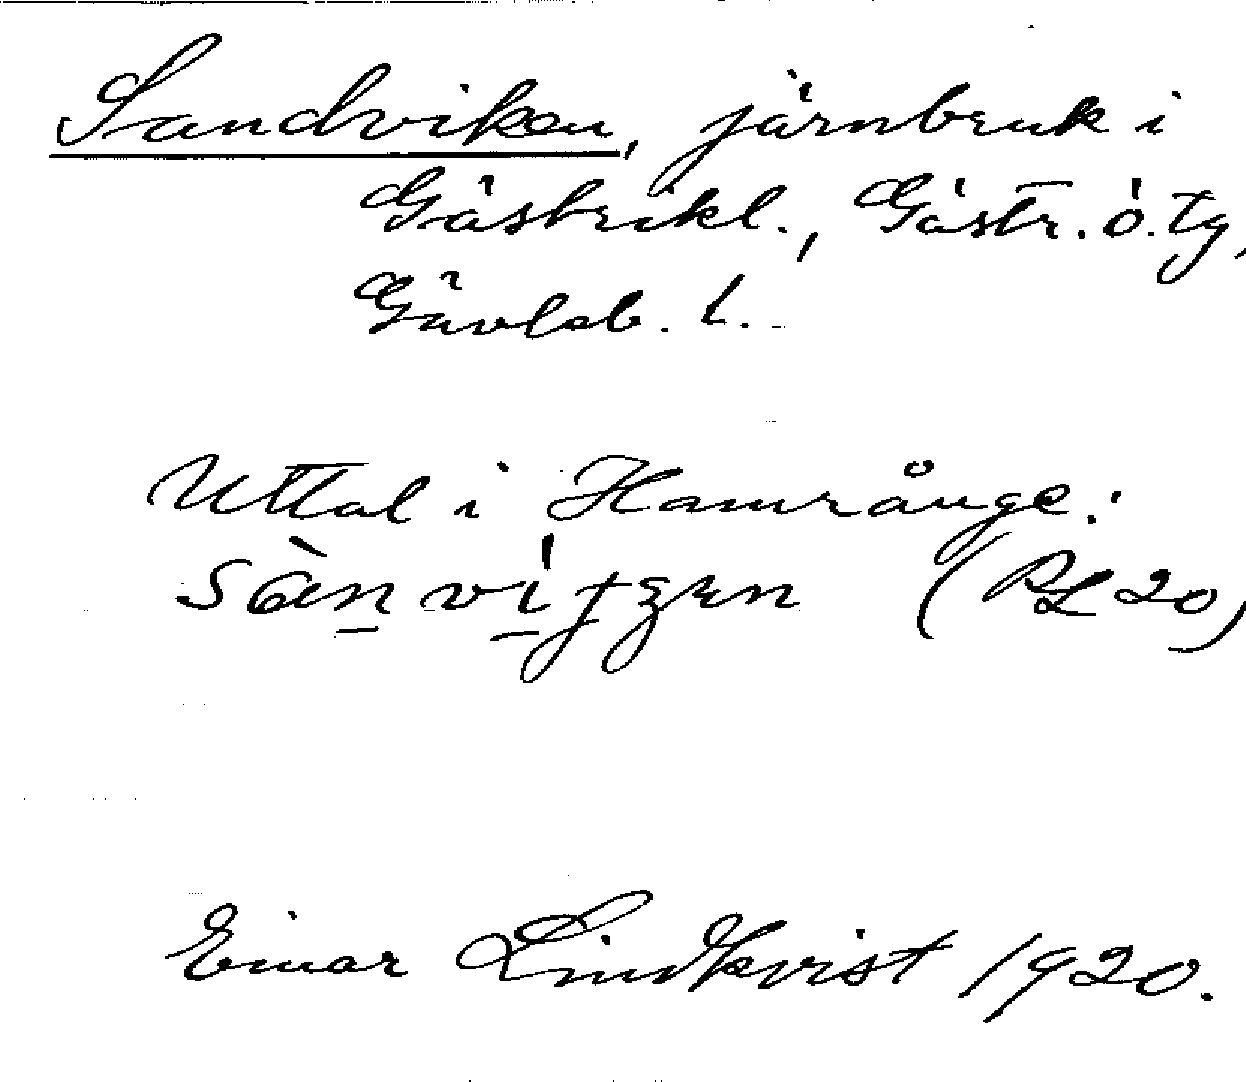 Sandviken, järnbruk i
Gästrikl., Gästr. ö. tg,
Gävleb. l.
Uttal i Hamrånge:
(RL 20)
Einar Lindkvist 1920.